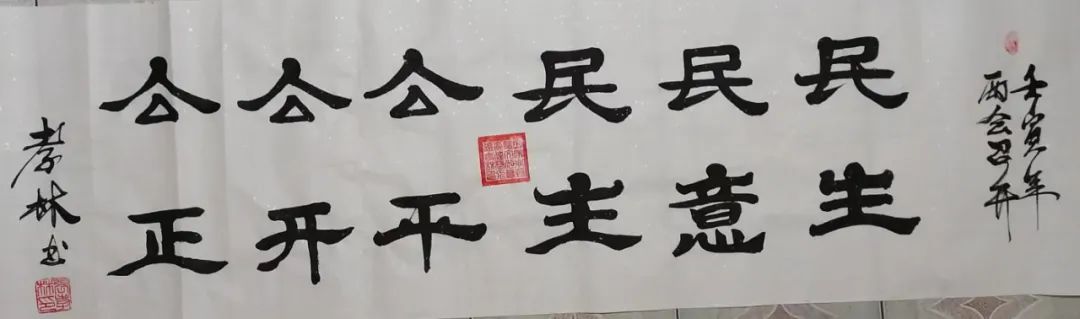 壬寅年
两会召开
民生
民意
民主
公平
公开
公正
孝林书